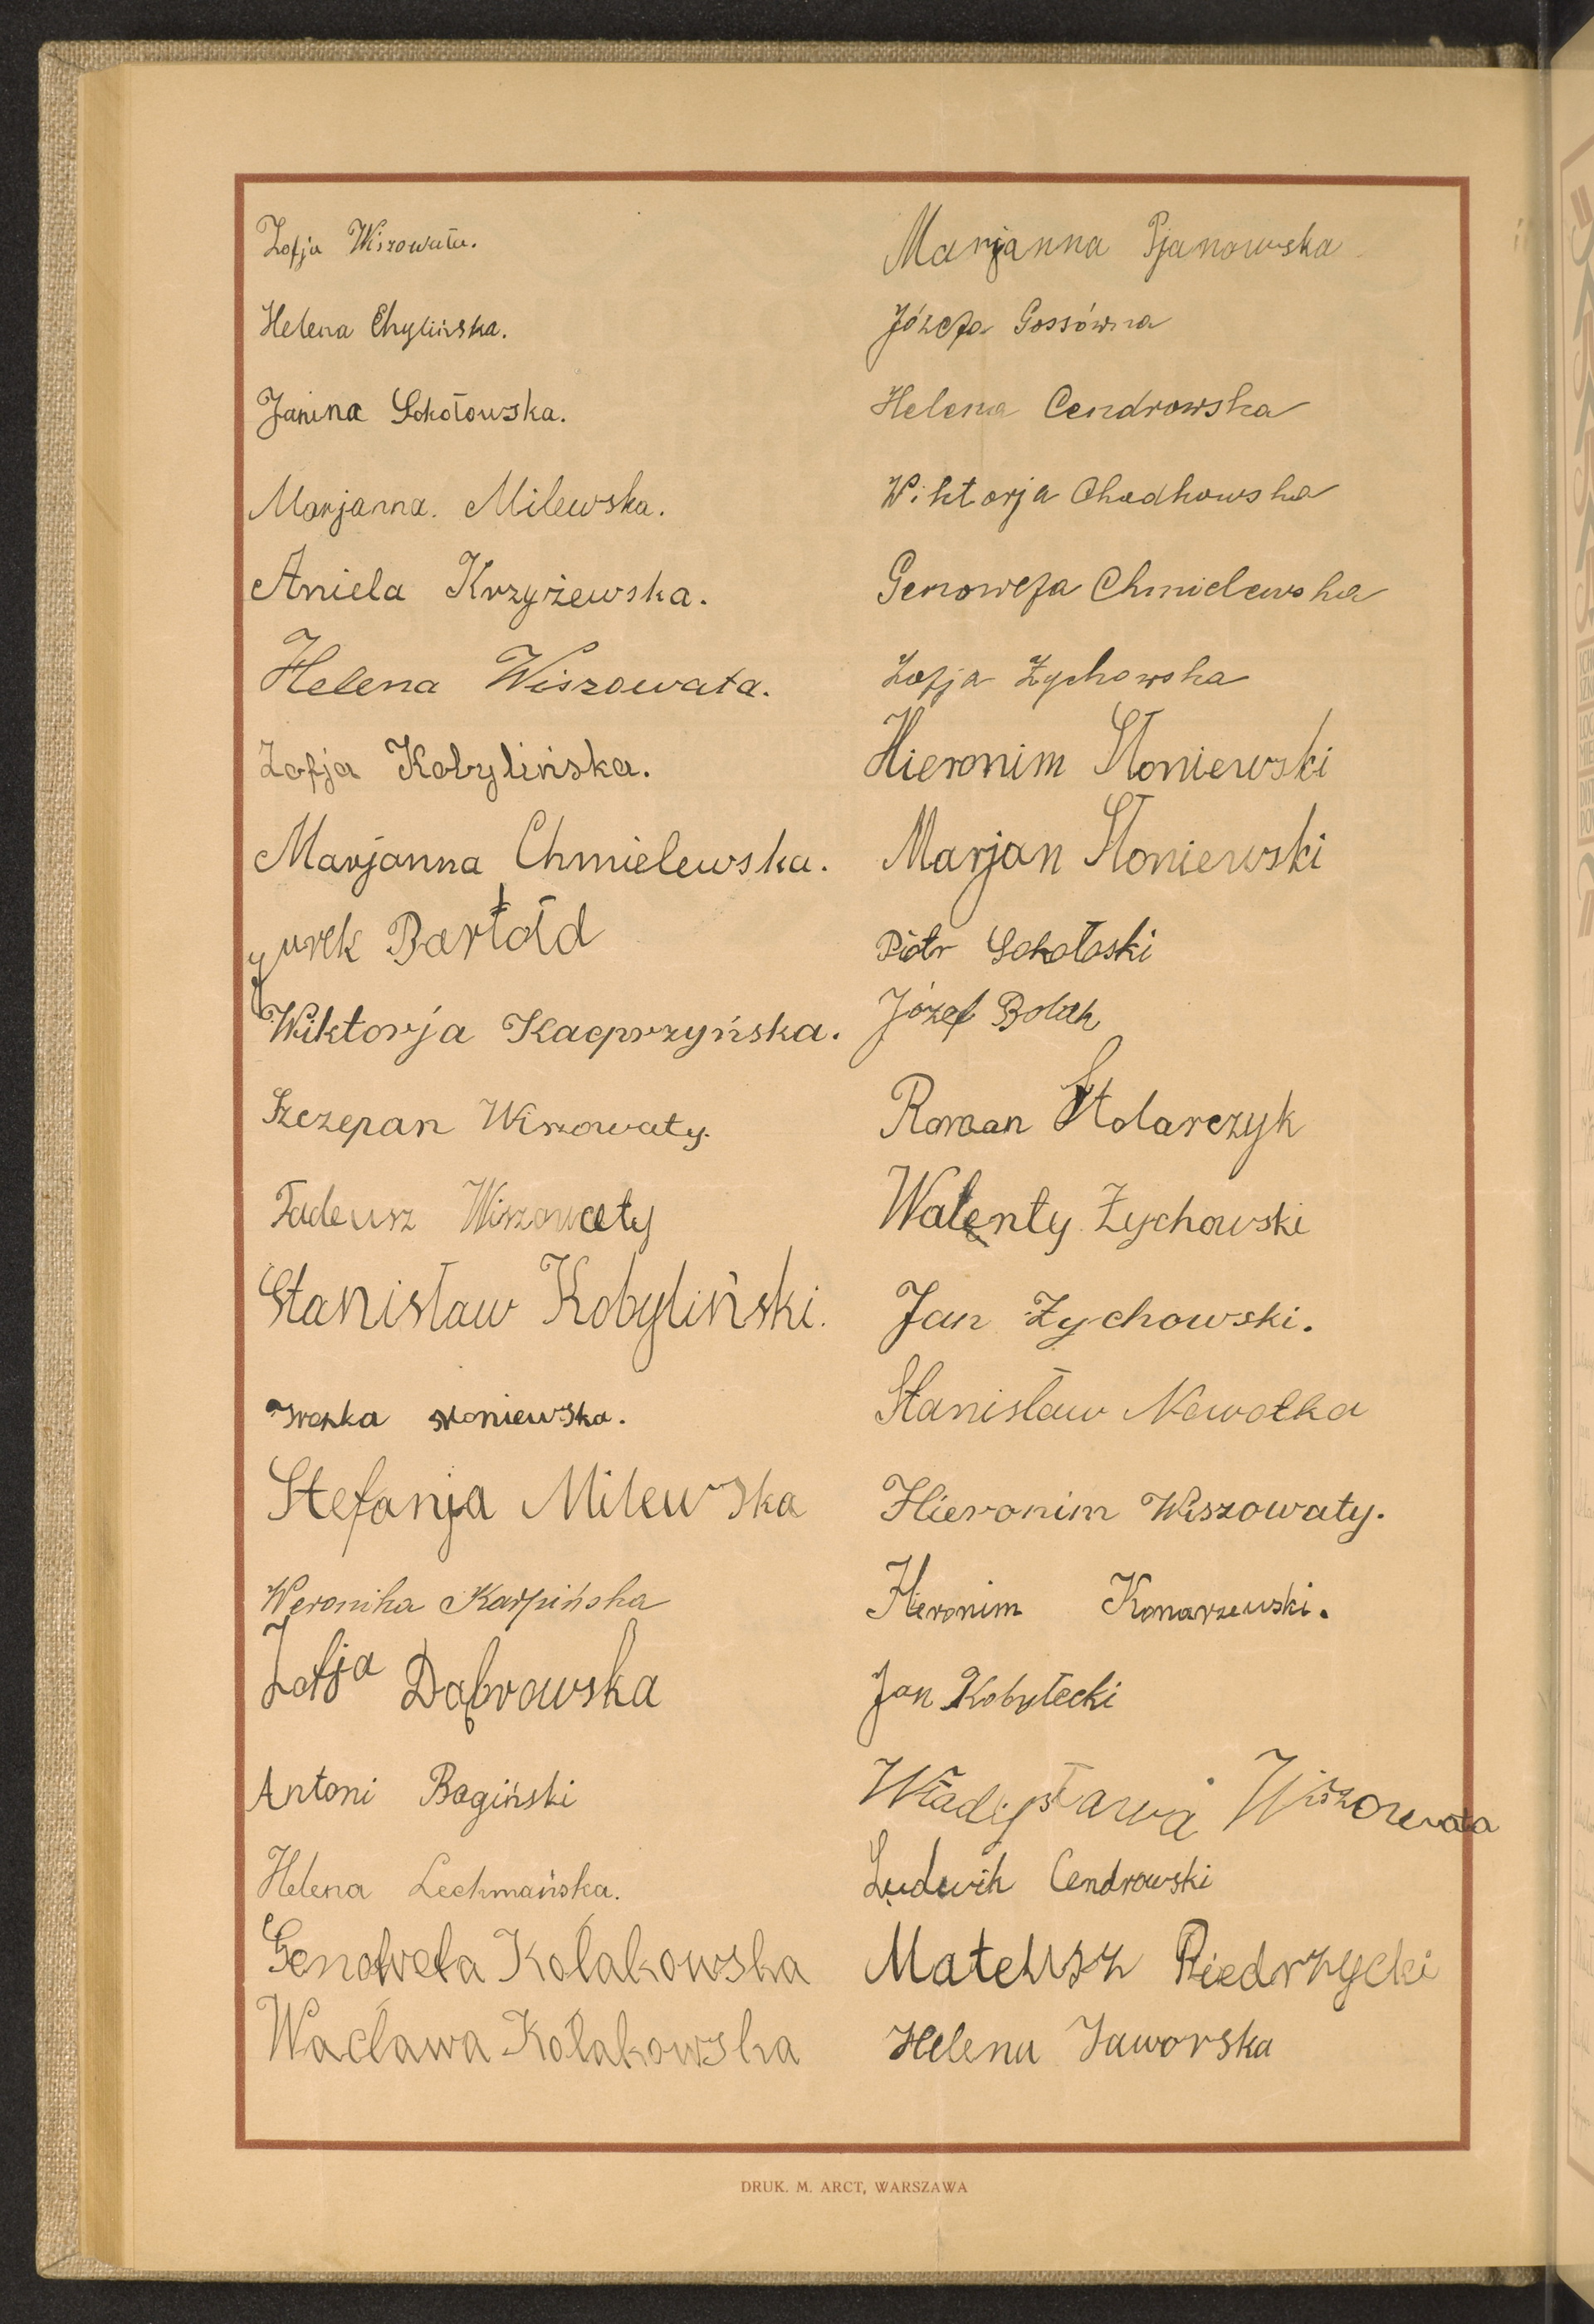 Zofja Wiszowata.
Helena Chylińska.
Janina Sokołowska.
Marjanna. Milewska.
Aniela Krzyżewska.
Helena Wiszowata.
Zofja Kobylińska.
Marjanna Chmielewska.
Jurek Bartołd
Wiktorja Kacprzyńska.
Szczepan Wiszowaty.
Tadeusz Wiszowaty
Stanisław Kobyliński.
Słoniewska.
Stefanja Milewska
Weronika Karpińska
Zofja Dąbrowska
Antoni Bagiński
Helena Lechmańska.
Genowefa Kołakowska
Wacława Kołakowska
Marjanna Pjanowska
Józefa Gossówna
Helena Cendrowska
Wiktorja Chodkowska
Genowefa Chmielewska
Zofja Żychowska
Hieronim Słoniewski
Marjan Słoniewski
Piotr Sokołoski
Józef Bolak
Roman Stolarczyk
Walenty Żychowski
Jan Żychowski.
Stanisław Nowotka
Hieronim Wiszowaty.
Hieronim Konarzewski.
Jan Kobyłecki
Władysława Wiszowata
Ludwik Cendrowski
Mateusz Biedrzycki
Helena Jaworska
DRUK. M. ARCT, WARSZAWA